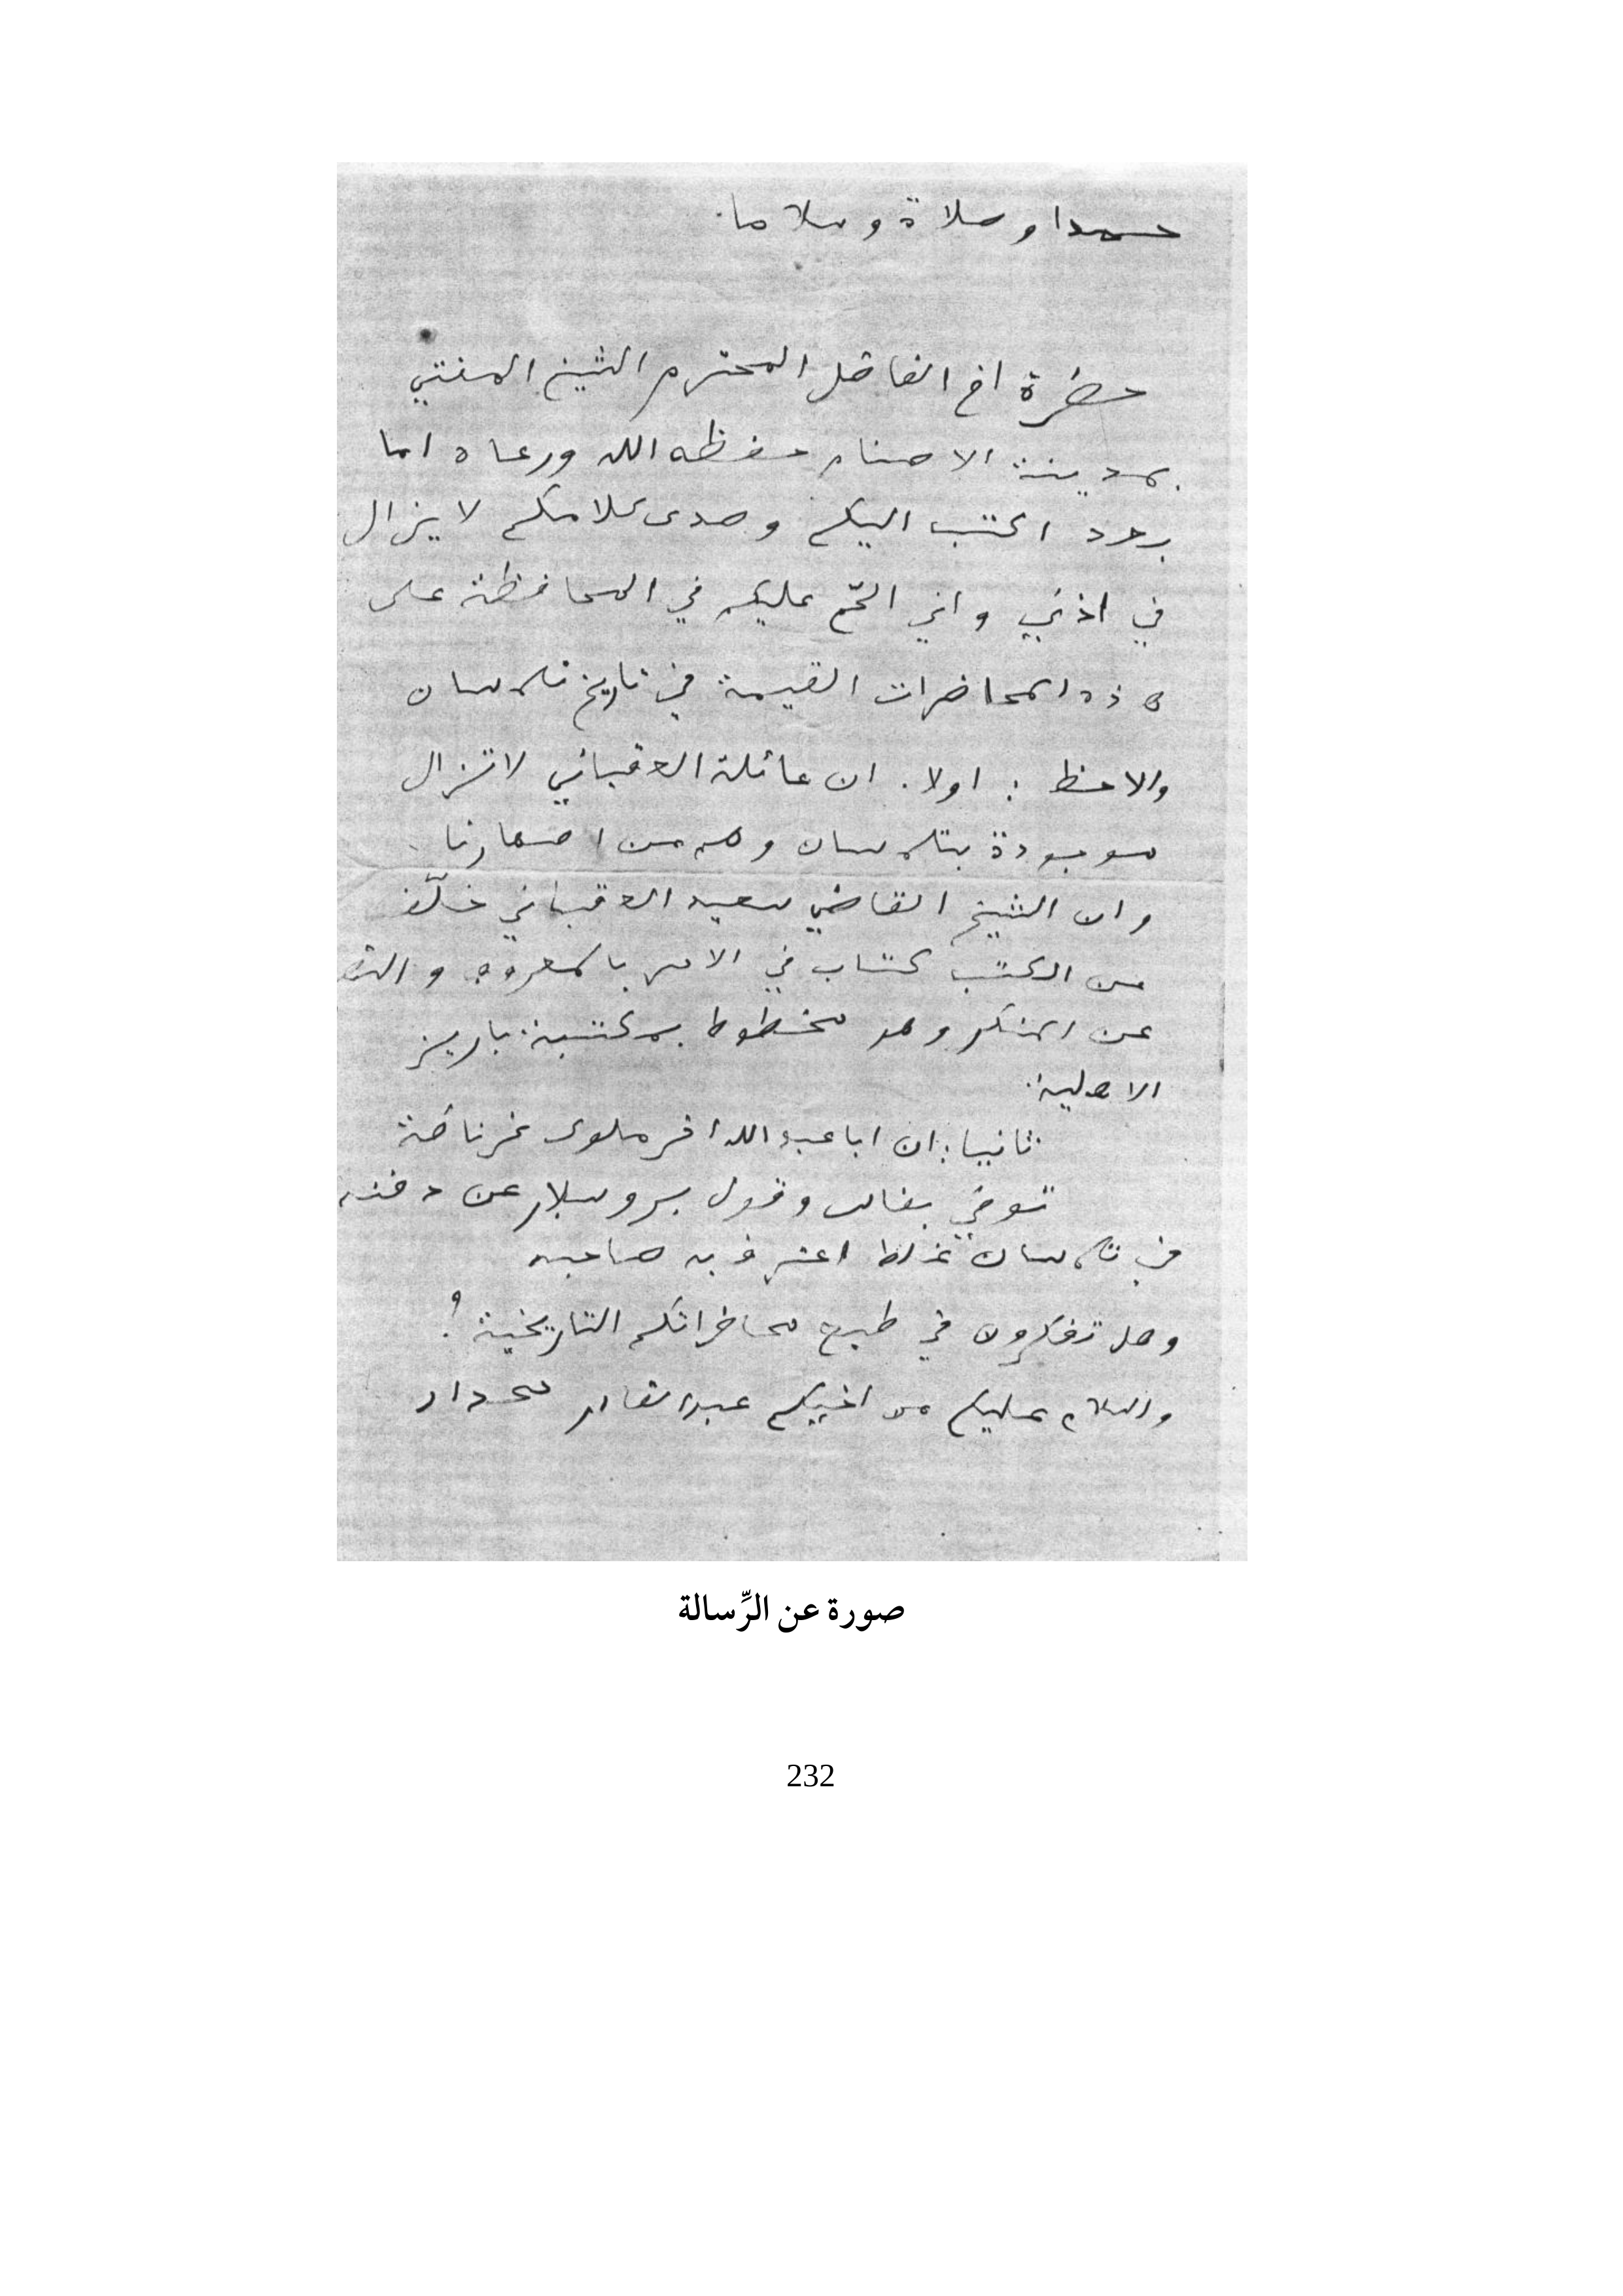 حمدا وصلاة وسلاما.
حضرة اخ الفاضل المحترم الشيخ المفتي
بمدينة الاصنام حفظه الله ورعاه اما
بعد اكتب اليكم وصدى كلامكم لا يزال
في اذني واني الحّ عليكم في المحافظة على
هذه المحاضرات القيمة في تاريخ تلمسان
والاحظ : اولا. ان عائلة العقباني لا تزال
موجودة بتلمسان وهم من اصهارنا.
وان الشيخ القاضي سعيد العقباني خلّف
من الكتب كتاب في الامر بالمعروف و
عن المنكر وهو مخطوط بمكتبة باريز
الاهلية.
ثانيا: ان ابا عبد الله اخر ملوك غرناطة
توفي بفاس وقول بروسلار عن دفنه
في تلمسان غلط اعترف به صاحبه
وهل تفكرون في طبع محاضراتكم التاريخية ؟
والسلام عليكم من اخيكم عبد القادر محداد
صورة عن الرِّسالة
232